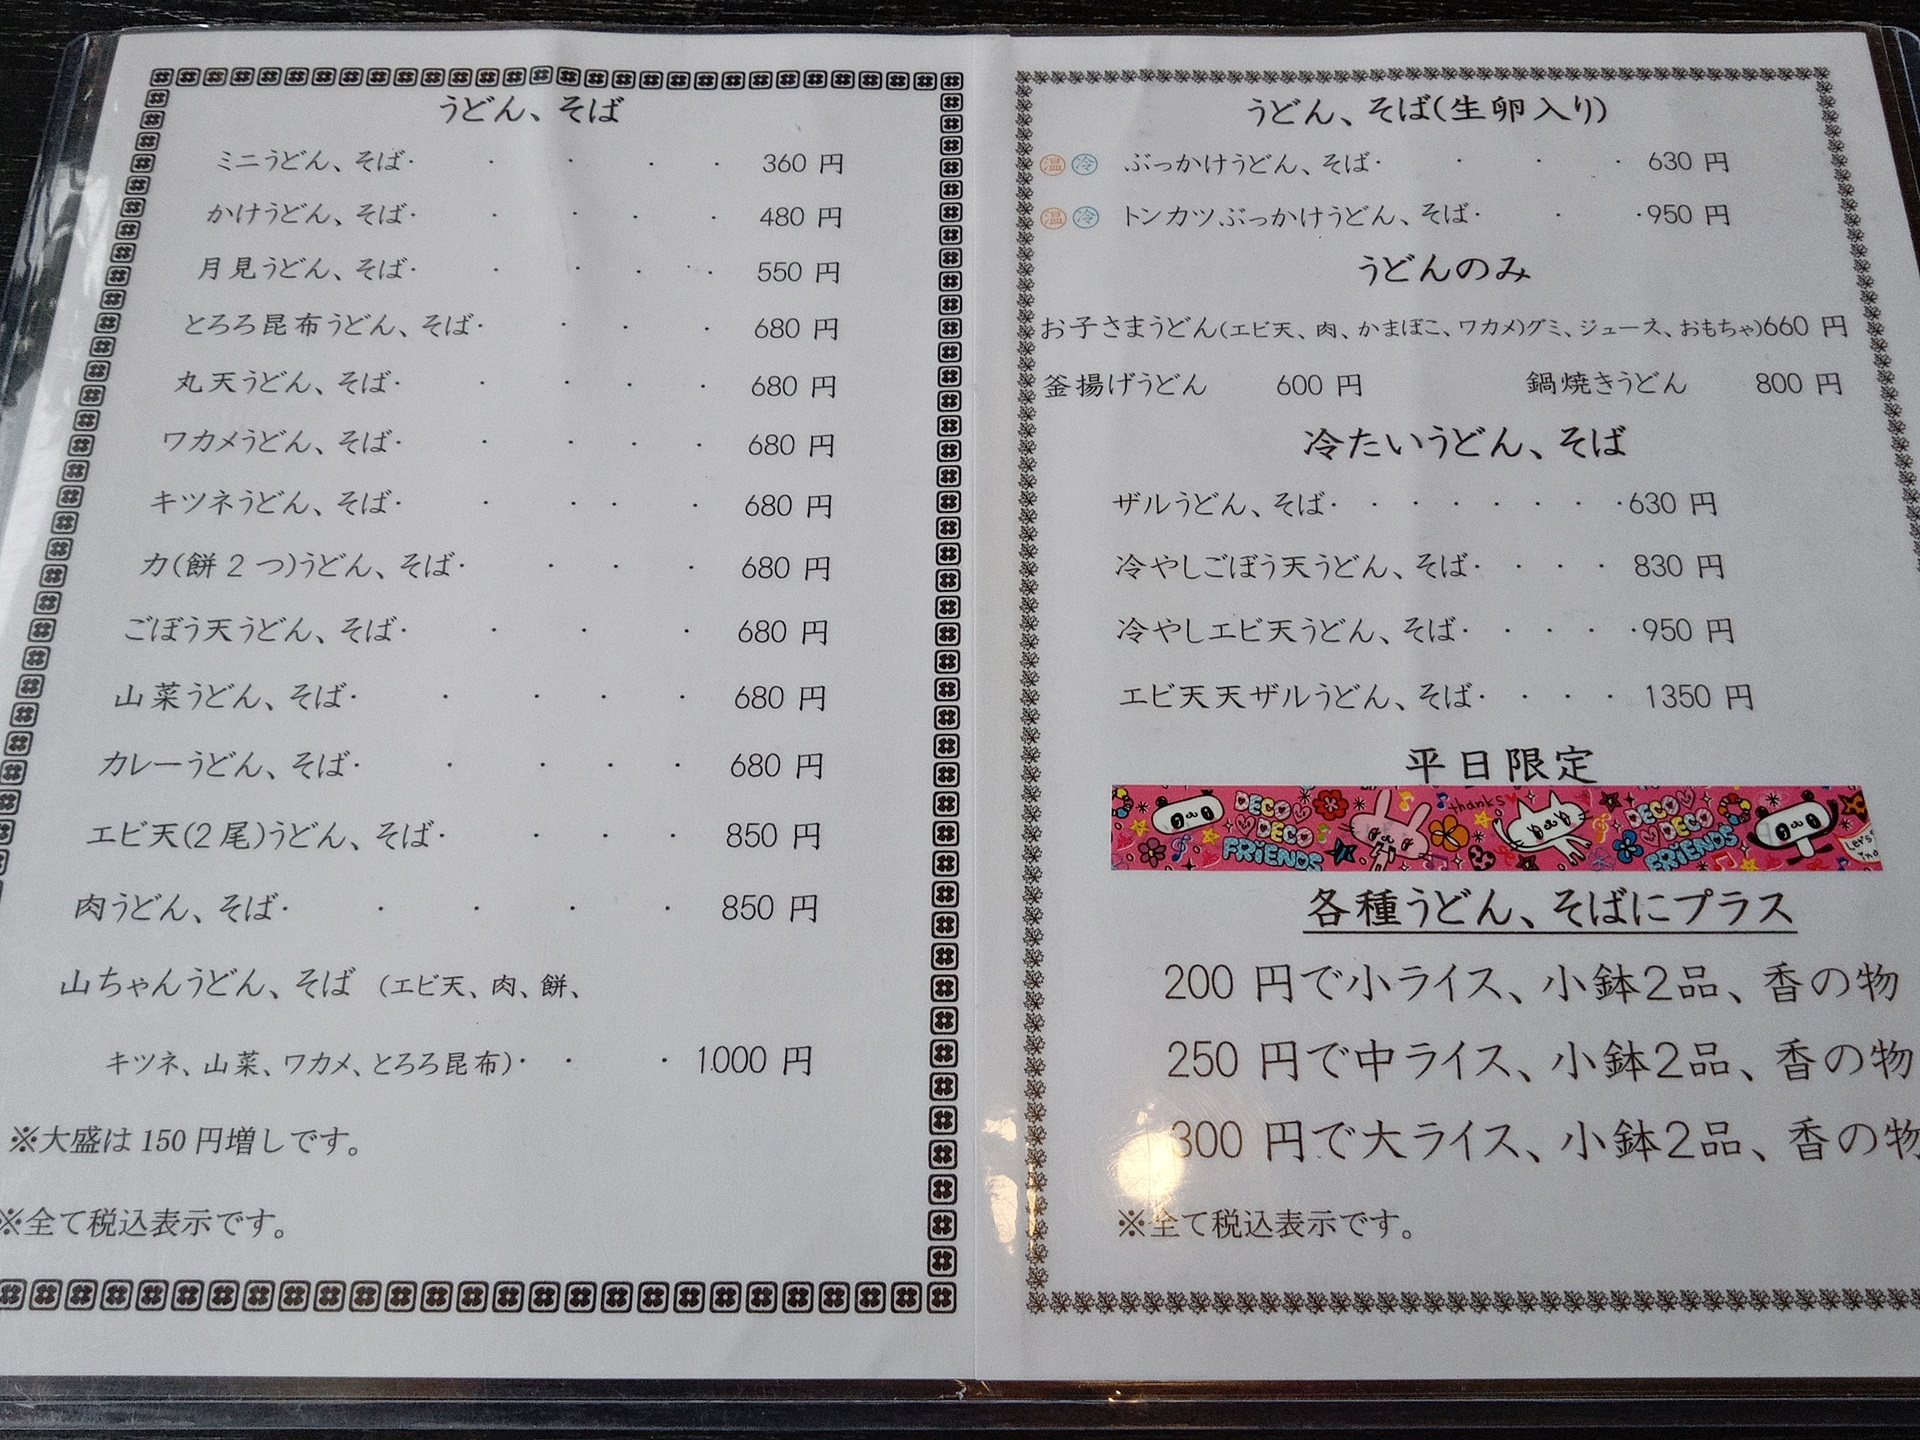 うどん、そば
ミニうどん、そば· · · · · 360 円
かけうどん、そば· · · · · 480 円
月見うどん、そば· · · · · · 550 円
とろろ昆布うどん、そば· · · · 680 円
丸天うどん、そば· · · · · 680 円
ワカメうどん、そば· · · · · 680 円
キツネうどん、そば· · · · · 680 円
力(餅2つ)うどん、そば· · · · 680 円
ごぼう天うどん、そば· · · · 680 円
山菜うどん、そば· · · · · 680 円
カレーうどん、そば· · · · · 680 円
エビ天(2尾)うどん、そば· · · · 850 円
肉うどん、そば· · · · · 850 円
山ちゃんうどん、そば (エビ天、肉、餅、
キツネ、山菜、ワカメ、とろろ昆布)· · · 1000 円
※大盛は150円増しです。
※全て税込表示です。
うどん、そば(生卵入り)
温 冷 ぶっかけうどん、そば· · · · 630 円
温 冷 トンカツぶっかけうどん、そば· · ·950 円
うどんのみ
お子さまうどん(エビ天、肉、かまぼこ、ワカメ)グミ、ジュース、おもちゃ)660 円
釜揚げうどん 600 円 鍋焼きうどん 800 円
冷たいうどん、そば
ザルうどん、そば· · · · · · · ·630 円
冷やしごぼう天うどん、そば· · · · 830 円
冷やしエビ天うどん、そば· · · · ·950 円
エビ天天ザルうどん、そば· · · · 1350 円
平日限定
DECO DECO FRIENDS thanks DECO DECO FRIENDS Let's
各種うどん、そばにプラス
200 円で小ライス、小鉢2品、香の物
250 円で中ライス、小鉢2品、香の物
300 円で大ライス、小鉢2品、香の物
※全て税込表示です。